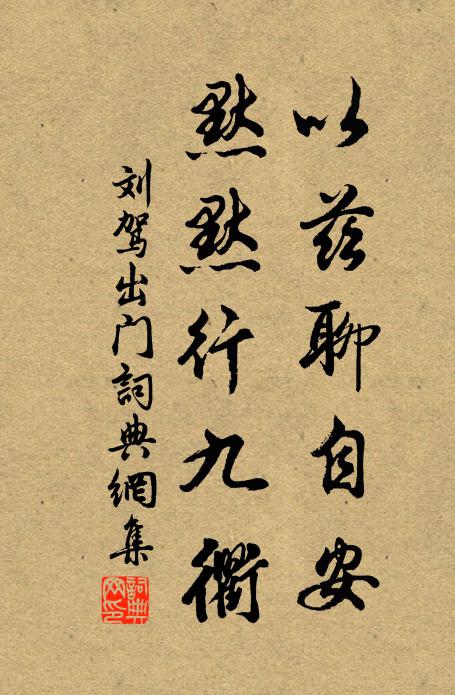 以兹聊自安
默默行九衢
刘驾出门詞典網集
詞典网印